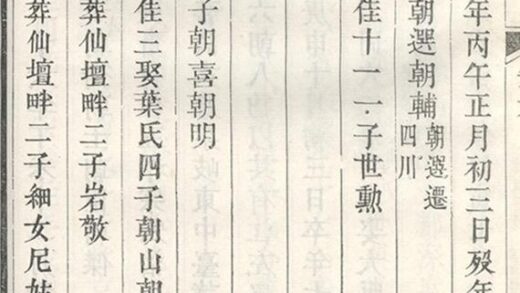 年丙午正月初三日歿年
朝選朝輔朝選遷四川
佳十一·子世勲
子朝喜朝明
佳三娶葉氏四子朝山朝
葬仙壇畔二子岩敬
葬仙壇畔二子細女尼姑